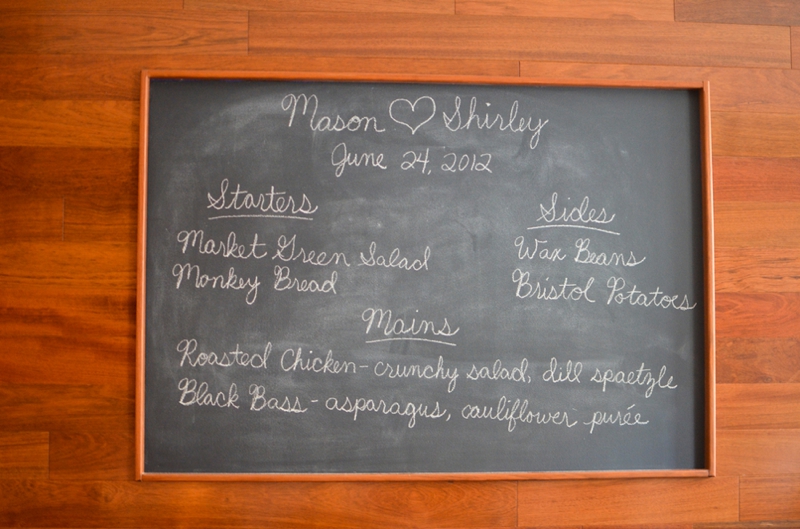 Mason ♡ Shirley
June 24, 2012
Starters
Market Green Salad
Monkey Bread
Sides
Wax Beans
Bristol Potatoes
Mains
Roasted Chicken - crunchy salad, dill spaetzle
Black Bass - asparagus, cauliflower purée